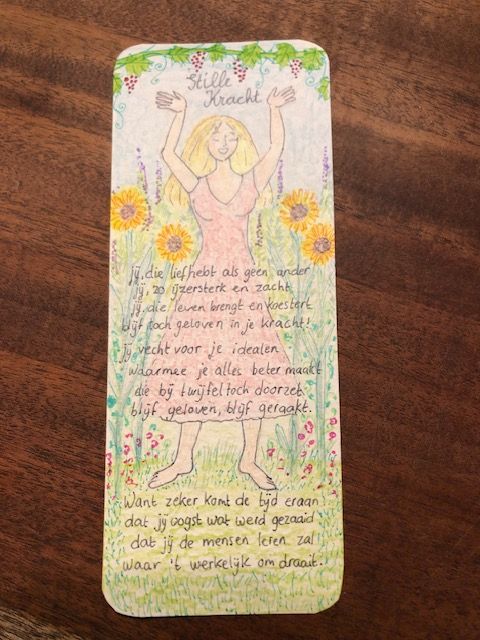 Stille
Kracht
jij, die liefhebt als geen ander
jij, zo ijzersterk en zacht
jij, die leven brengt en koestert
blijf toch geloven in je kracht!
jij vecht voor je idealen
waarmee je alles beter maakt
die bij twijfel toch doorzet
blijf geloven, blijf geraakt.
Want zeker komt de tijd eraan
dat jij oogst wat werd gezaaid
dat jij de mensen leren zal
waar 't werkelijk om draait.